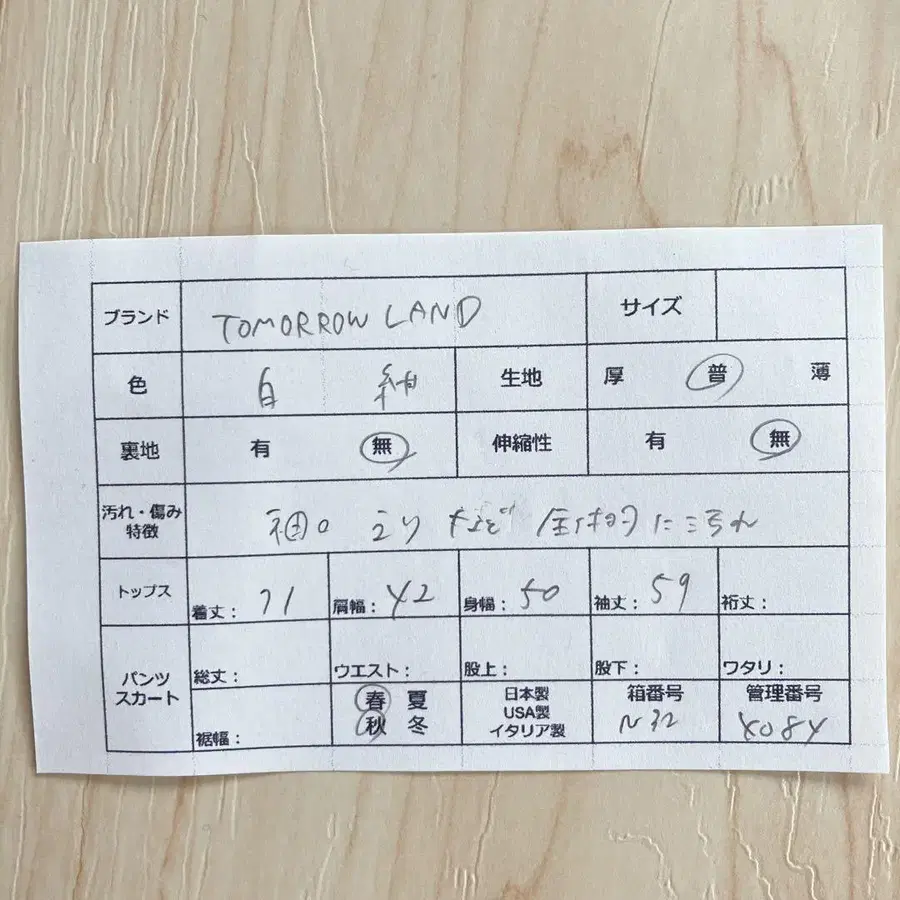 ブランド TOMORROW LAND サイズ
色 白 紺 生地 厚 普 薄
裏地 有 無 伸縮性 有 無
汚れ・傷み
特徴 袖口 えり など 全体的に汚れ
トップス 着丈: 71 肩幅: 42 身幅: 50 袖丈: 59 裄丈:
パンツ
スカート 総丈: ウエスト: 股上: 股下: ワタリ:
裾幅: 春 夏
秋 冬
日本製
USA製
イタリア製
箱番号
N32
管理番号
4084